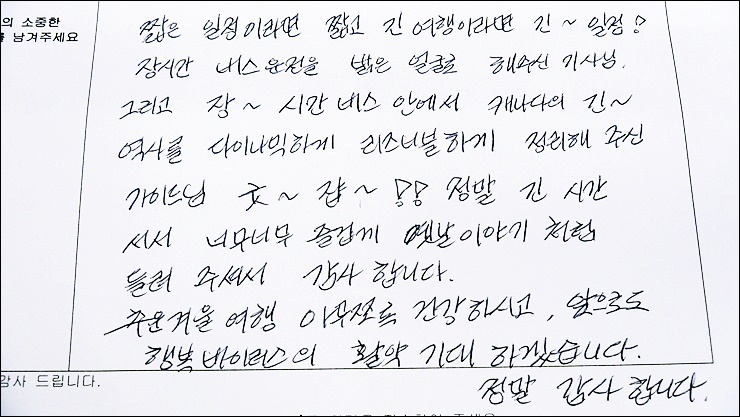 의 소중한
남겨주세요
짧은 일정이라면 짧고 긴 여행이라면 긴~ 일정!
장시간 버스운전을 밝은 얼굴로 해주신 기사님.
그리고 장~ 시간 버스 안에서 캐나다의 긴~
역사를 다이나믹하게 리즈너블하게 정리해 주신
가이드님 굿~ 쟙~ !! 정말 긴 시간
써서 너무너무 즐겁게 옛날이야기 처럼
들려 주셔서 감사 합니다.
추운겨울 여행 아무쪼록 건강하시고, 앞으로도
행복바이러스의 활약 기대 하겠습니다.
감사 드립니다.
정말 감사 합니다.